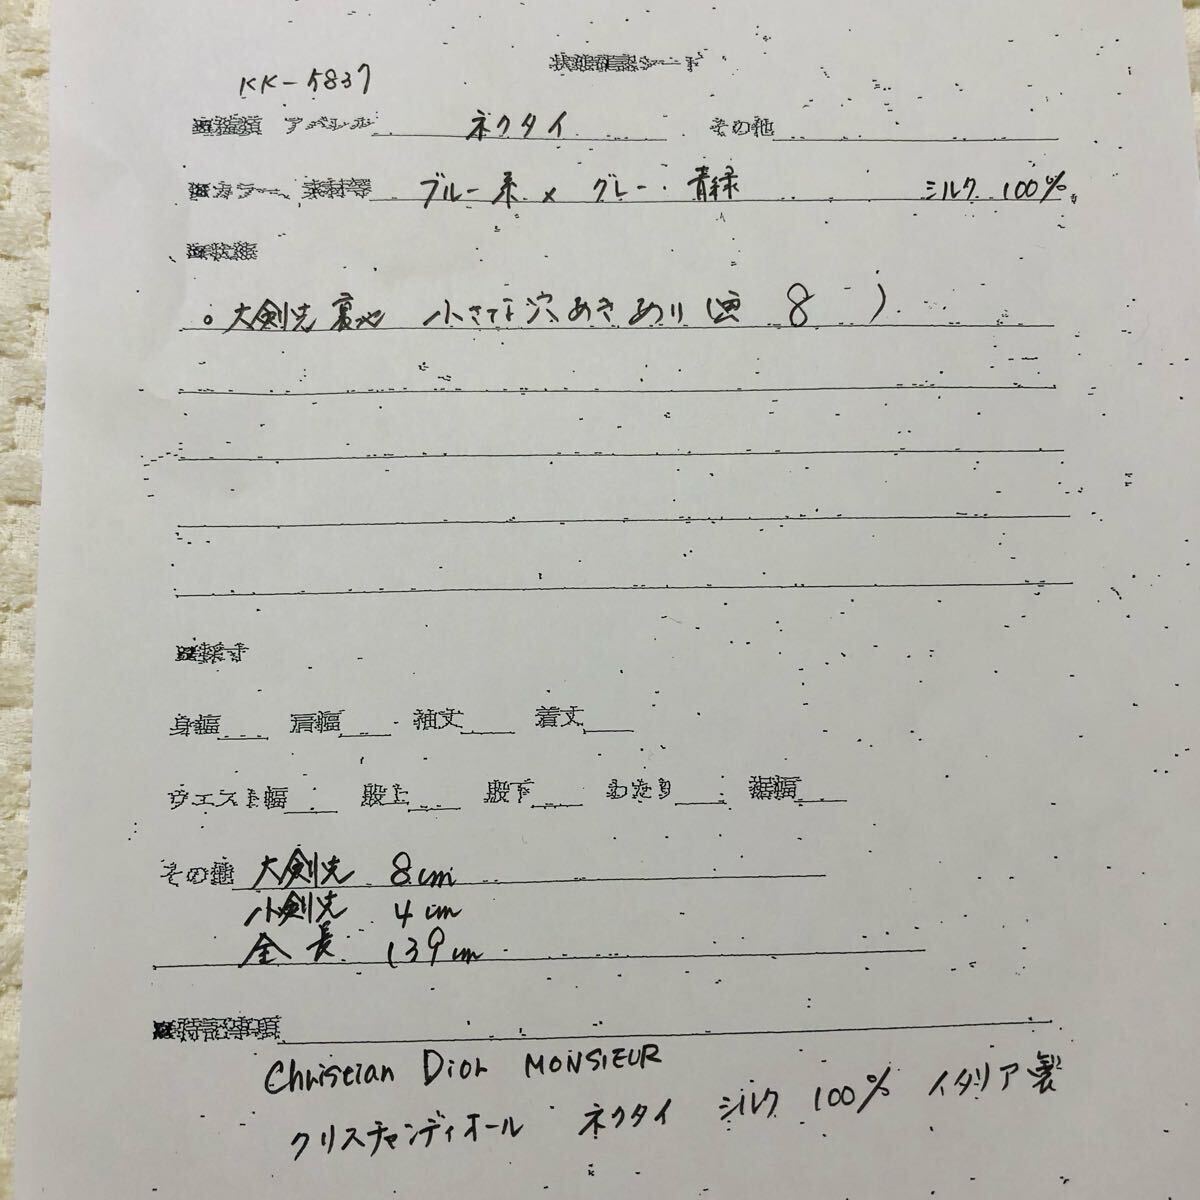 状態確認シート
KK-5837
■種類 アパレル ネクタイ その他
■カラー、素材等 ブルー系 × グレー・青緑 シルク 100%
■状態
○大剣先裏地 小さな穴あきあり(画 8 )
■採寸
身幅 肩幅 袖丈 着丈
ウエスト幅 股上 股下 わたり 裾幅
その他 大剣先 8cm
小剣先 4cm
全長 139cm
■特記事項
Christian Dior MONSIEUR
クリスチャンディオール ネクタイ シルク 100% イタリア製